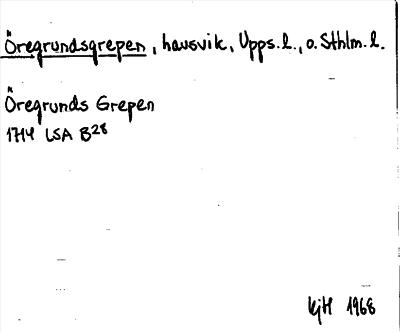 Öregrundsgrepen, havsvik, Upps. l., o. Sthlm. l.
Öregrunds Grepen
1714 LSA B28
KjH 1968